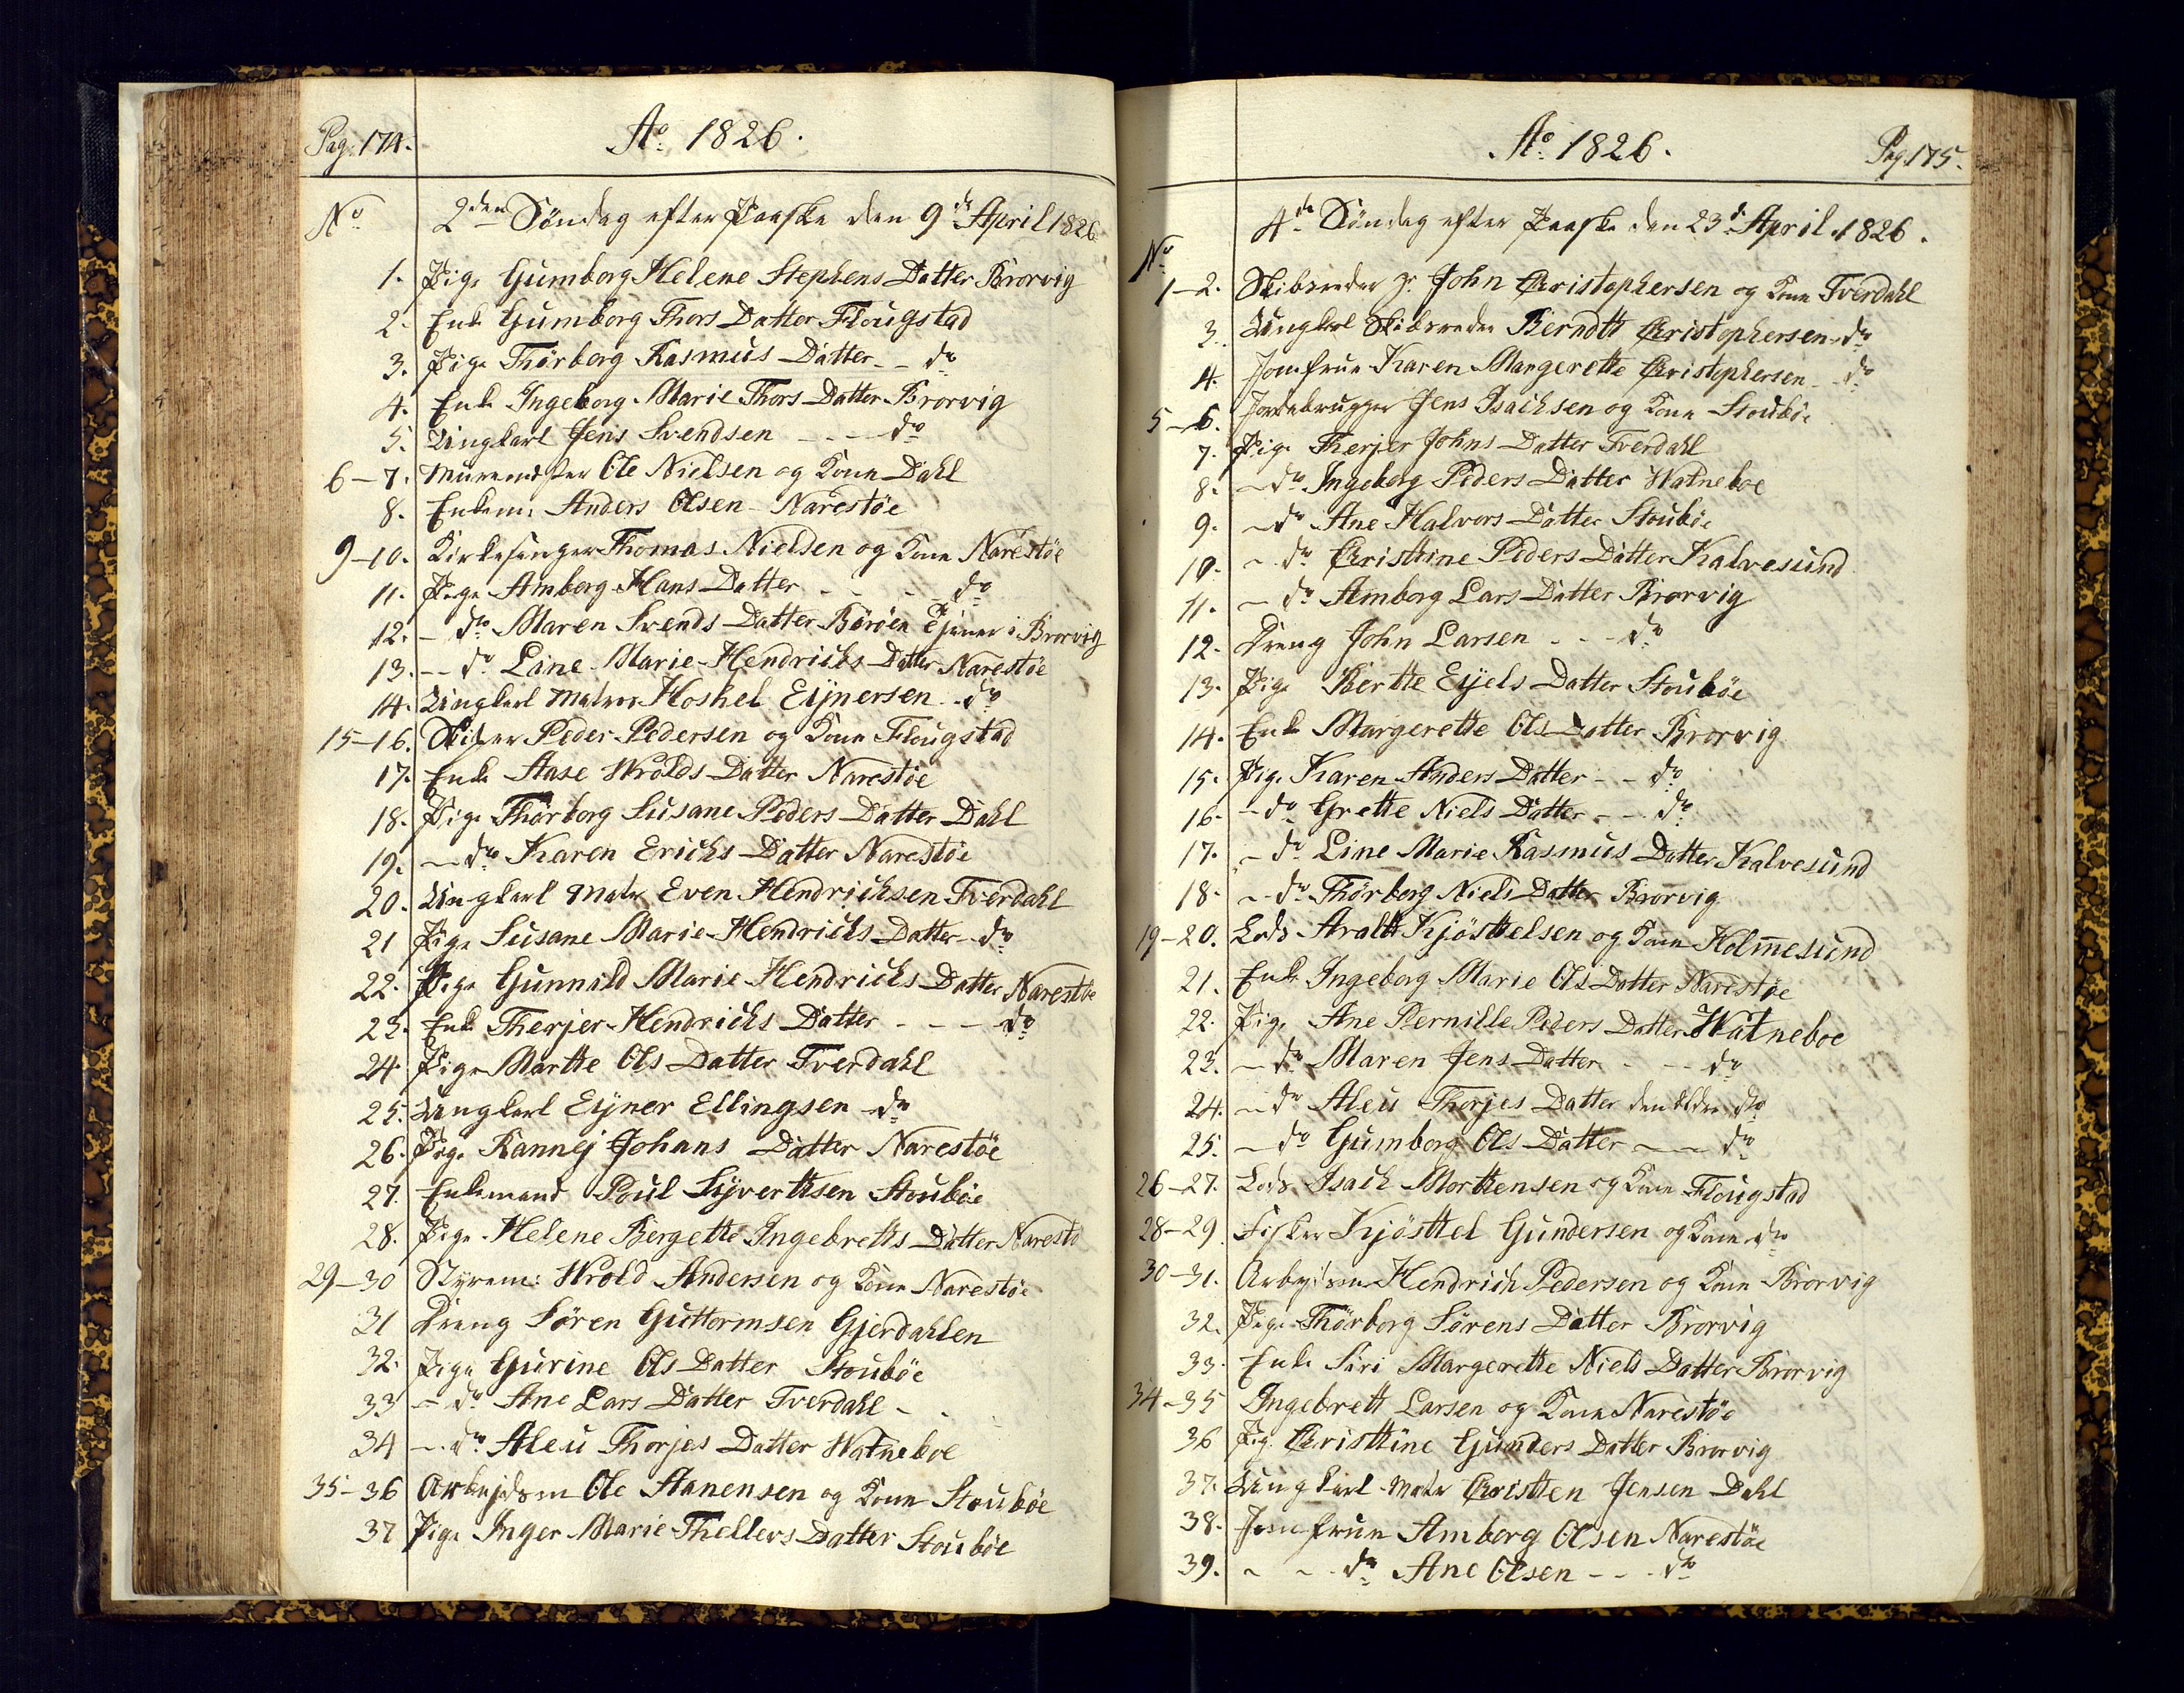 Pag: 174.
Ao 1826.
No
2den Söndag efter Paaske den 9de April 1826
1. Pige Gumborg Helene Stephens Datter Brorvig
2. Enke Gumborg Thors Datter Flougstad
3. Pige Thörborg Rasmus Datter - - do
4. Enke Ingeborg Marie Thors Datter Brorvig
5. Ungkarl Jens Svendsen - - - do
6-7. Murmester Ole Nielsen og Kone Dahl
8. Enkem: Anders Olsen Narestöe
9-10. Kirkesanger Thomas Nielsen og Kone Narestöe
11. Pige Amborg Hans Datter - - - do
12. - do Maren Svends Datter Böröen tjener i Brorvig
13. - do Line Marie Hendrichs Datter Narestöe
14. Ungkarl Matros Hoskel Eÿnersen - do
15-16. Skiper Peder Pedersen og Kone Flougstad
17. Enke Aase Wrolds Datter Narestöe
18. Pige Thörborg Susane Peders Datter Dahl
19. - do Karen Erichs Datter Narestöe
20. Ungkarl Matr Even Hendrichsen Tverdahl
21 Pige Susane Marie Hendrichs Datter - do
22. Pige Gunnild Marie Hendrichs Datter Narestöe
23. Enke Therjer Hendrichs Datter - - - do
24 Pige Marthe Ols Datter Tverdahl
25. Ungkarl Eÿner Ellingsen - do
26. Pige Rannej Johans Datter Narestöe
27. Enkemand Poul Sÿvertsen Stouböe
28. Pige Helene Bergette Ingebretts Datter Narestö
29-30 Styrem: Wrold Andersen og Kone Narestöe
31 Dreng Sören Guttormsen Gjerdahlen
32. Pige Gurine Ols Datter Stouböe
33 - do Ane Lars Datter Tverdahl -
34 - do Aleu Thorjes Datter Watneboe
35-36 Arbejdsm Ole Aanensen og Kone Stouböe
37 Pige Inger Marie Thellevs Datter Stouböe
Ao 1826.
Pag. 175.
4de Söndag efter Paaske den 23de April 1826.
No
1-2. Skibsreder John Christophersen og Kone Tverdahl
3. Ungkarl Skibsreder Berndtt Christophersen - do
4. Jomfrue Karen Margerette Christophersen - do
5-6. Jordebrugger Jens Isachsen og Kone Stouböe
7. Pige Therjer Johns Datter Tverdahl
8. - do Ingeborg Peders Datter Watneboe
9. - do Ane Halvors Datter Stouböe
10. - do Christtine Peders Datter Kalvesund
11. - do Amborg Lars Datter Brorvig
12. Dreng John Larsen - - - do
13. Pige Bertte Eÿels Datter Stouböe
14. Enke Margerette Ols Datter Brorvig
15. Pige Karen Anders Datter - - do
16. - do Grette Niels Datter - - do
17. - do Line Marie Rasmus Datter Kalvesund
18. - do Thörborg Niels Datter Brorvig
19-20. Lods Araltt Kjösttelsen og Kone Holmesund
21. Enke Ingeborg Marie Ols Datter Narestöe
22. Pige Ane Pernille Peders Datter Watneboe
23. - do Maren Jens Datter - - - do
24. - do Aleu Thorjes Datter den eldre do
25. - do Gumborg Ols Datter - - do
26-27. Lods Isach Morttensen og Kone Flougstad
28-29 Fisker Kjösttel Gundersen og Kone do
30-31. Arbejdsm Hendrich Pedersen og Kone Brorvig
32. Pige Thörborg Sörens Datter Brorvig
33. Enke Siri Margerette Niels Datter Brorvig
34-35 Ingebrett Larsen og Kone Narestöe
36 Pig. Christtine Gunders Datter Brorvig
37. Ungkarl Matr Christten Jensen Dahl
38. Jomfrue Amborg Olsen Narestöe
39. - - do Ane Olsen - - - do